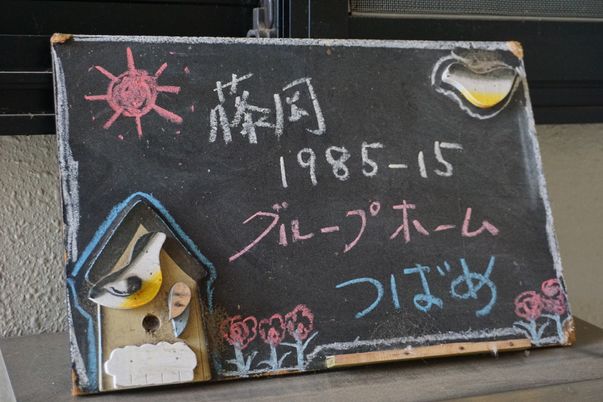 藤岡
1985-15
グループホーム
つばめ